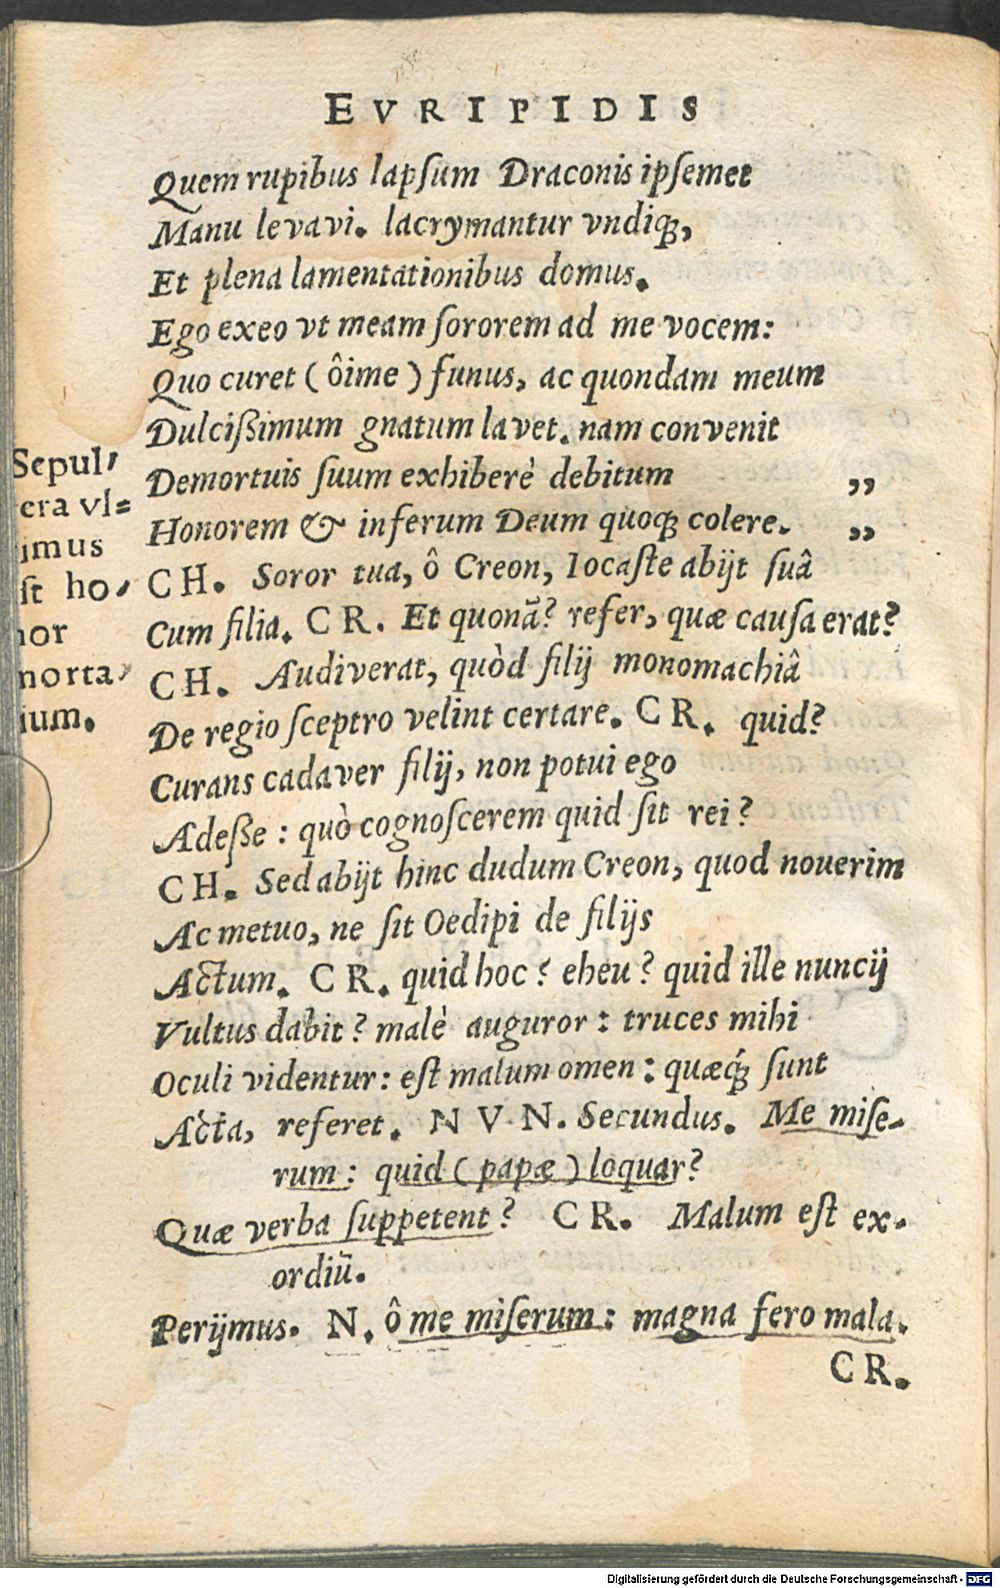 EVRIPIDIS
Quem rupibus lapſum Draconis ipſemet
Manu levavi. lacrymantur vndiq́;,
Et plena lamentationibus domus.
Ego exeo vt meam ſororem ad me vocem:
Quo curet (ôime) funus, ac quondam meum
Dulcißimum gnatum lavet. nam convenit
Demortuis ſuum exhiberè debitum ,,
Honorem & inferum Deum quoq; colere. ,,
CH. Soror tua, ô Creon, Iocaſte abijt ſuâ
Cum filia. CR. Et quonã? refer, quæ cauſa erat?
CH. Audiverat, quòd filij monomachiâ
De regio ſceptro velint certare. CR. quid?
Curans cadaver filij, non potui ego
Adeße: quò cognoſcerem quid ſit rei?
CH. Sed abijt hinc dudum Creon, quod nouerim
Ac metuo, ne ſit Oedipi de filijs
Actum. CR. quid hoc? eheu? quid ille nuncij
Vultus dabit? malè auguror: truces mihi
Oculi videntur: eſt malum omen: quæq́; ſunt
Acta, referet. NVN. Secundus. Me miſe-
rum: quid (papæ) loquar?
Quæ verba ſuppetent? CR. Malum eſt ex-
ordiũ.
Perijmus. N. ô me miſerum: magna fero mala.
CR.
Sepul-
cra vl=
imus
ſt ho-
nor
morta-
ium.
Digitalisierung gefördert durch die Deutsche Forschungsgemeinschaft - DFG